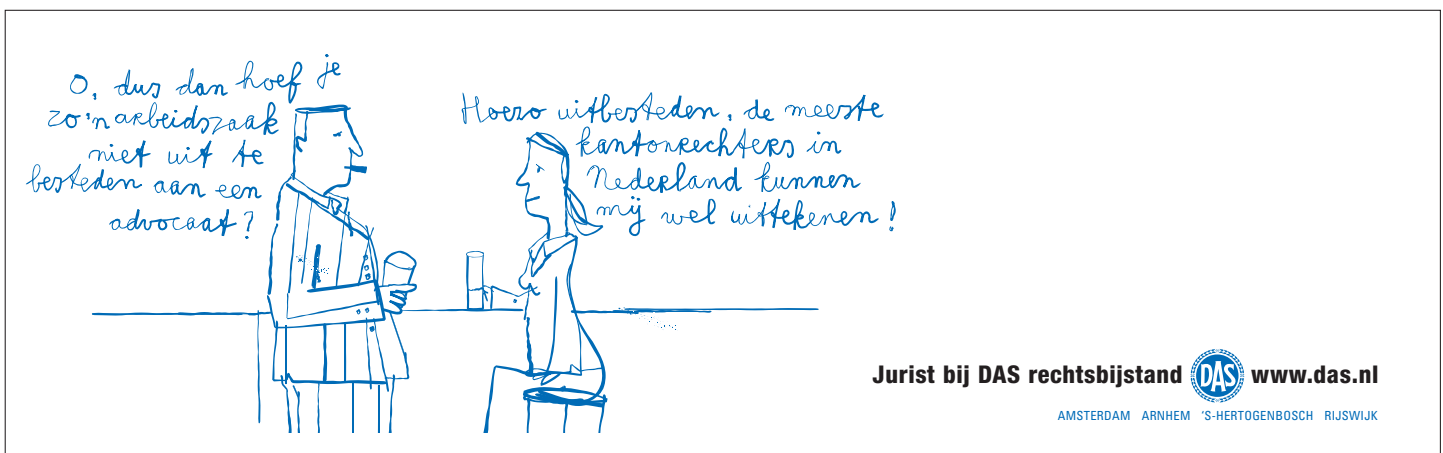 O, dus dan hoef je
zo'n arbeidszaak
niet uit te
besteden aan een
advocaat?
Hoezo uitbesteden, de meeste
kantonrechters in
Nederland kunnen
mij wel uittekenen!
Jurist bij DAS rechtsbijstand DAS www.das.nl
AMSTERDAM ARNHEM 'S-HERTOGENBOSCH RIJSWIJK